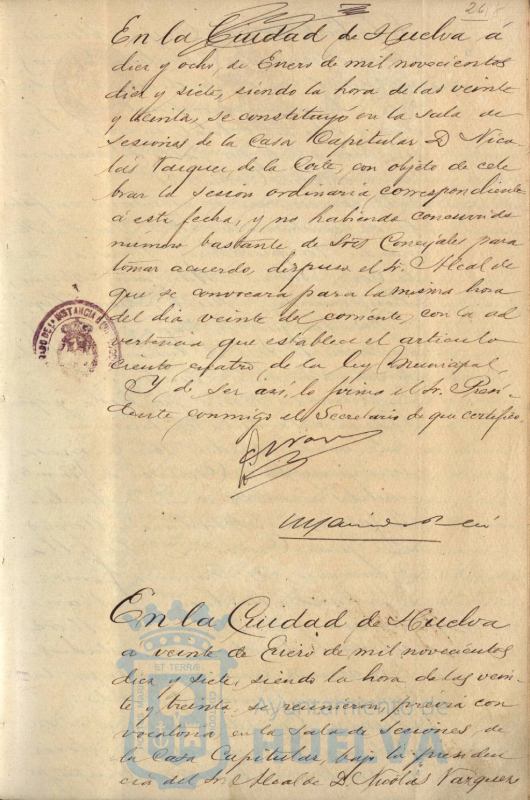 26
En la Ciudad de Huelva á
diez y ocho, de Enero de mil novecientos
diez y siete, siendo la hora de las veinte
y treinta, se constituyó en la sala de
sesiones de la Casa Capitular D. Nico-
lás Vazquez de la Corte, con objeto de cele
brar la sesión ordinaria correspondiente
á esta fecha, y no habiendo concurrido
número bastante de Sres Concejales para
tomar acuerdo, dispuso el Sr. Alcalde
que se convocara para la misma hora
del dia veinte del corriente, con la ad
vertencia que establece el articulo
ciento cuatro de la ley Municipal.
Y de ser asi, lo firma el Sr. Presi-
dente conmigo el Secretario de que certifico.
En la Ciudad de Huelva
a veinte de Enero de mil novecientos
diez y siete, siendo la hora de las vein-
te y treinta, se reunieron previa con
vocatoria, en la Sala de sesiones, de
la Casa Capitular bajo la presiden
cia del Sr. Alcalde D. Nicolás Vazquez
ET TERRÆ
Ayuntamiento de
HUELVA